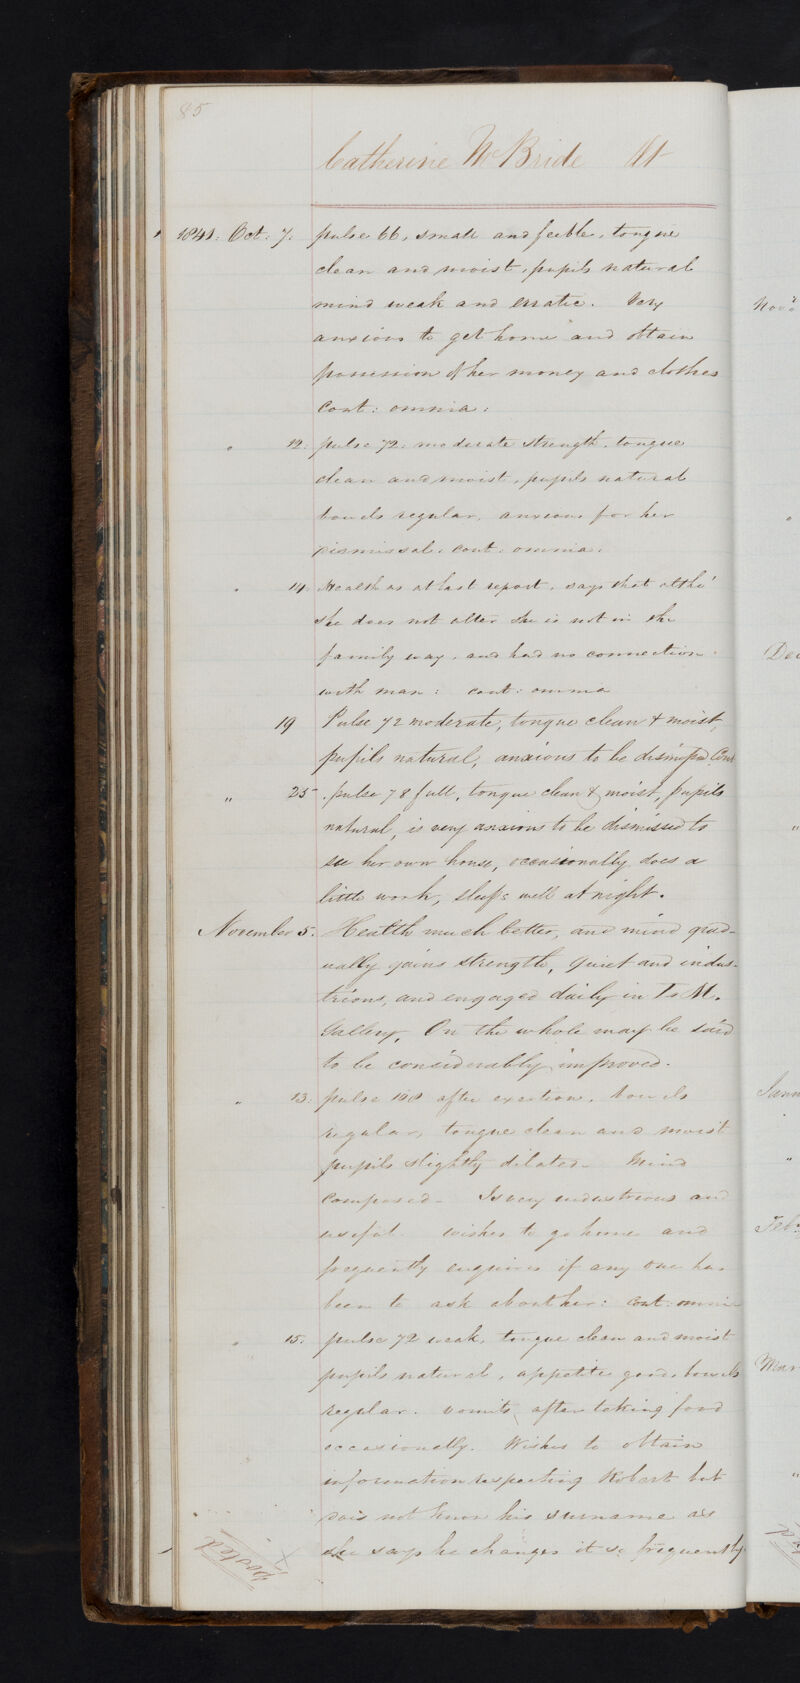 85
Catherine McBride
1841. Oct. 7. pulse 66, small and feeble, tongue
clean and moist, pupils natural
mind weak and erratic. Very
anxious to get home and obtain
possession of her money and clothes
Cont: omnia:
12. pulse 72. moderate strength. tongue
clean and moist, pupils natural
bowels regular, anxious for her
dismissal. cont: omnia.
14. Health as at last report, says that altho'
she does not alter she is not in the
family way, and had no connection
with man: cont: omnia
19 Pulse 72 moderate, tongue clean & moist,
pupils natural, anxious to be dismissed Cont
" 25. pulse 78 full, tongue clean & moist, pupils
natural, is very anxious to be dismissed to
see her own house, occasionally does a
little work, sleeps well at night.
November 5. Health much better, and mind grad-
ually gains strength, Quiet and indus-
trious, and engaged daily in
Gallery, On the whole may be said
to be considerably improved.
" 13. pulse 100 after exertion. bowels
regular, tongue clean and moist
pupils slightly dilated - Mind
composed - Is very industrious and
useful wishes to go home and
frequently enquires if any one has
been to ask about her: cont: omnia
15. pulse 72 weak, tongue clean and moist
pupils natural, appetite good, bowels
regular. vomits after taking food
occasionally. Wishes to obtain
information respecting Robert but
does not know his surname as
she says he changes it so frequently
Nov
Dec
"
Janu
"
Feb
Mar
"